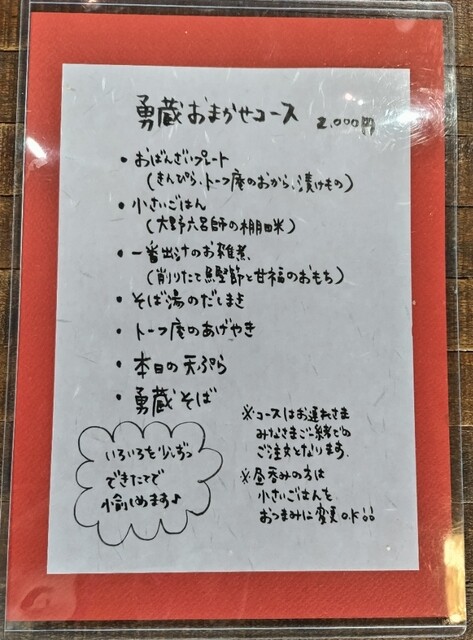 勇蔵おまかせコース 2,000円
・おばんざいプレート
(きんぴら、トーフ庵のおから、漬けもの)
・小さいごはん
(大野六呂師の棚田米)
・一番出汁のお雑煮、
(削りたて鰹節と甘福のおもち)
・そば湯のだしまき
・トーフ庵のあげやき
・本日の天ぷら
・勇蔵そば
いろいろを少しづつ
できたてで
愉しめます♪
※コースはお連れさま
みなさまご一緒での
ご注文となります。
※昼呑みの方は
小さいごはんを
おつまみに変更OK!!